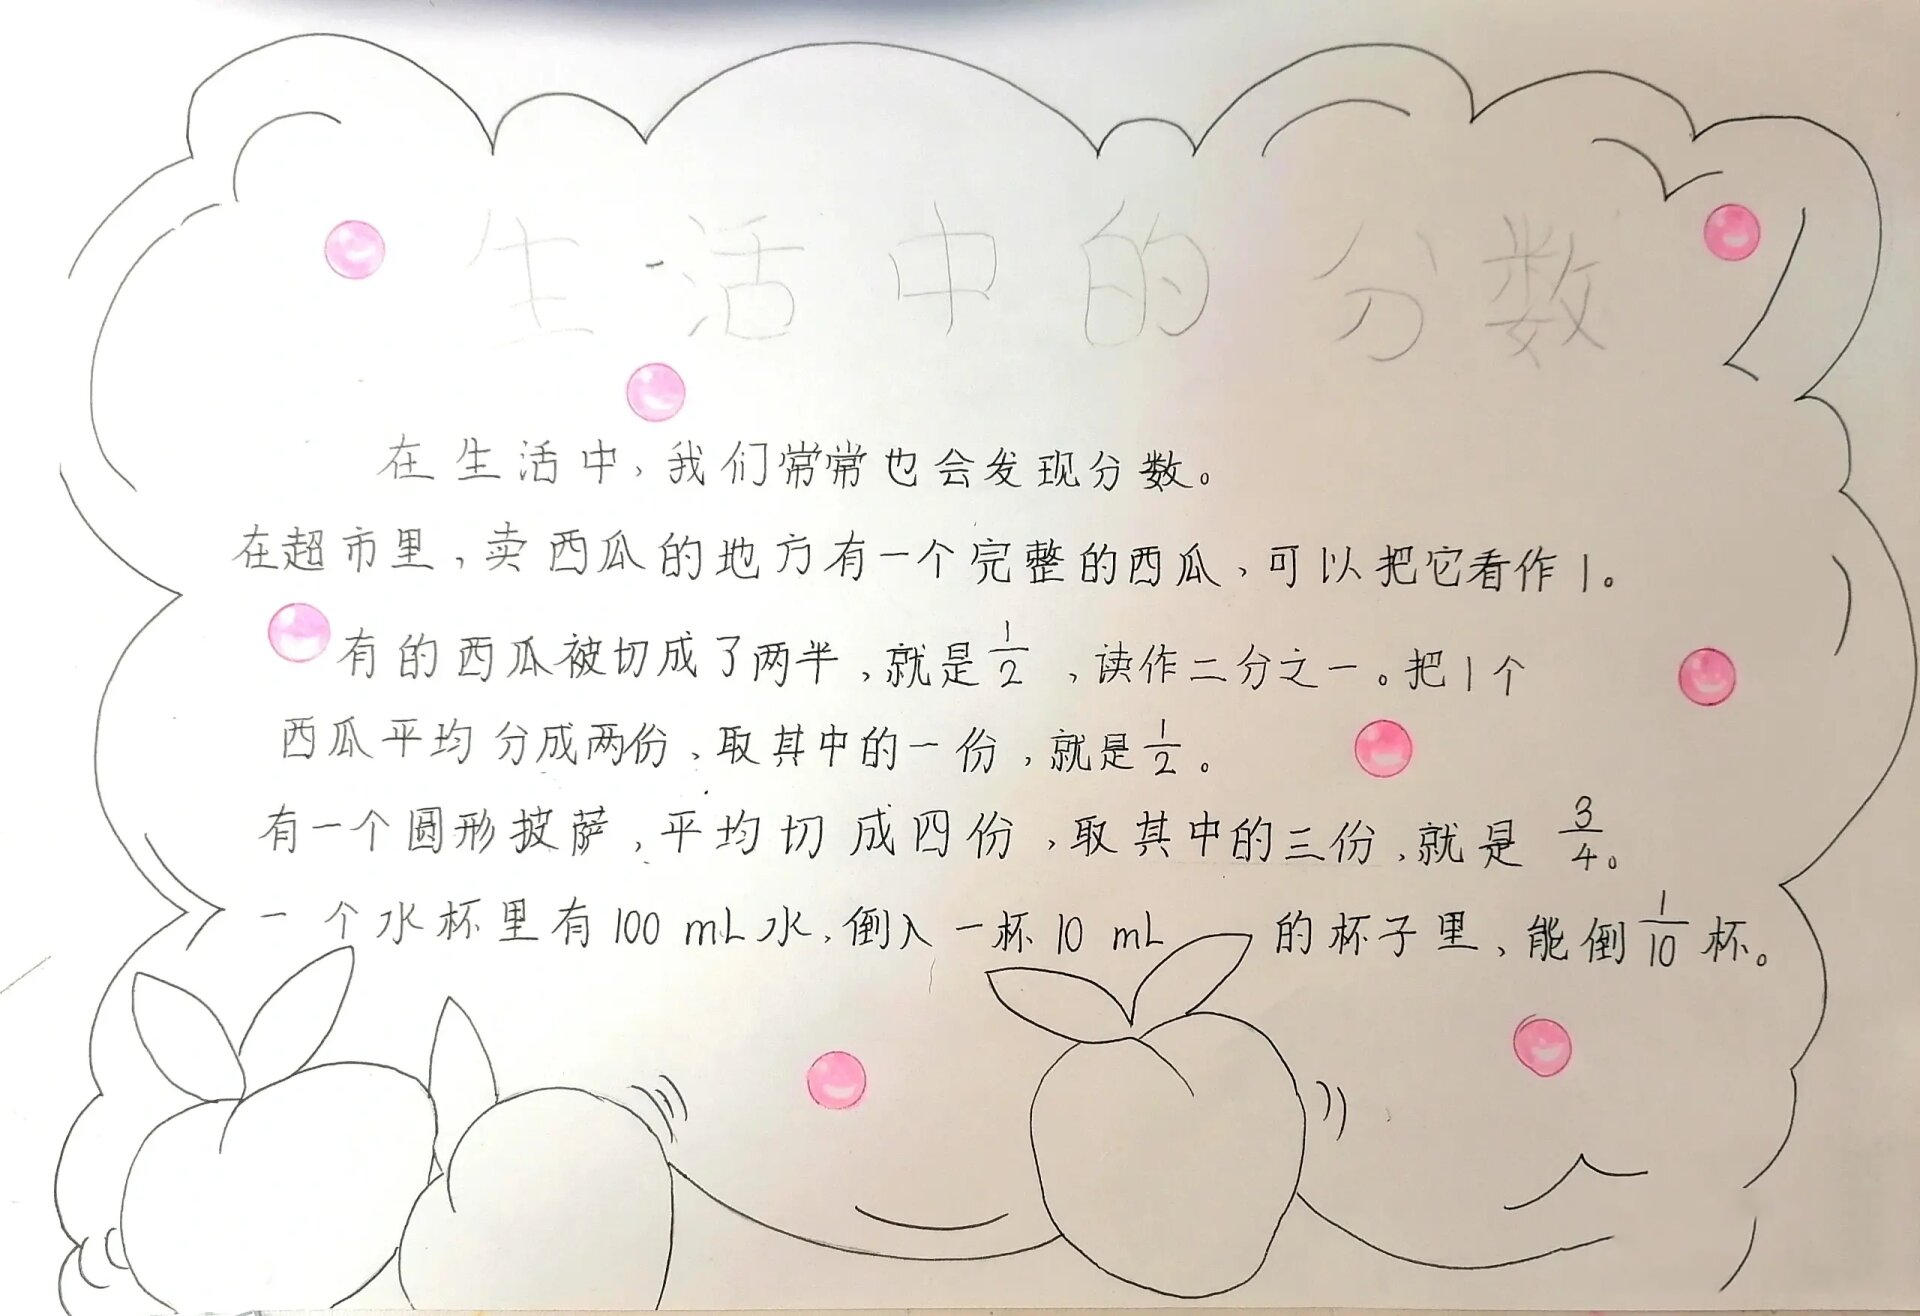 生活中的分数
在生活中，我们常常也会发现分数。
在超市里，卖西瓜的地方有一个完整的西瓜，可以把它看作1。
有的西瓜被切成了两半，就是1/2，读作二分之一。把1个
西瓜平均分成两份、取其中的一份，就是1/2。
有一个圆形披萨，平均切成四份，取其中的三份，就是3/4。
一个水杯里有100 mL水，倒入一杯10 mL的杯子里、能倒1/10杯。